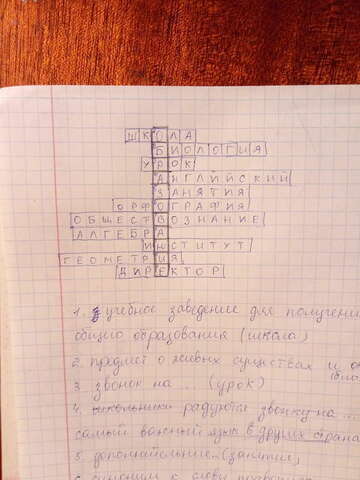 ШКОЛА
БИОЛОГИЯ
УРОК
АНГЛИЙСКИЙ
ЗАНЯТИЯ
ОРФОГРАФИЯ
ОБЩЕСТВОЗНАНИЕ
АЛГЕБРА
ИНСТИТУТ
ГЕОМЕТРИЯ
ДИРЕКТОР
1. учебное заведение для получени
общего образования (школа)
2. предмет о живых существах и о
3. звонок на ... (урок)
4. школьники радуются звонку на ...
самый важный язык в других стана
5. дополнительные.. (занятия)
6. синоним к слову